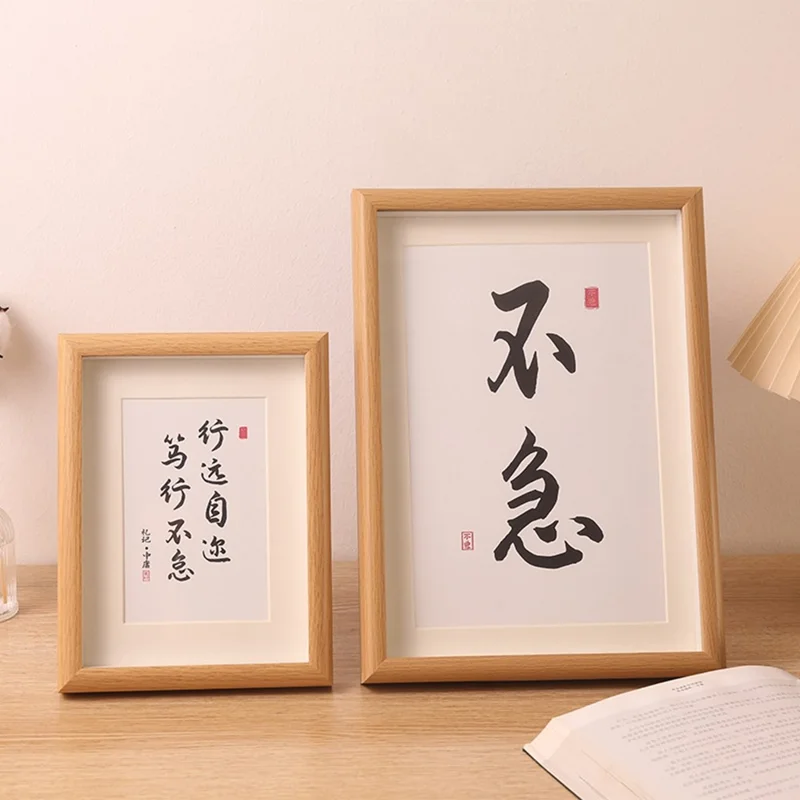 行远自迩
笃行不怠
礼记·中庸
不急